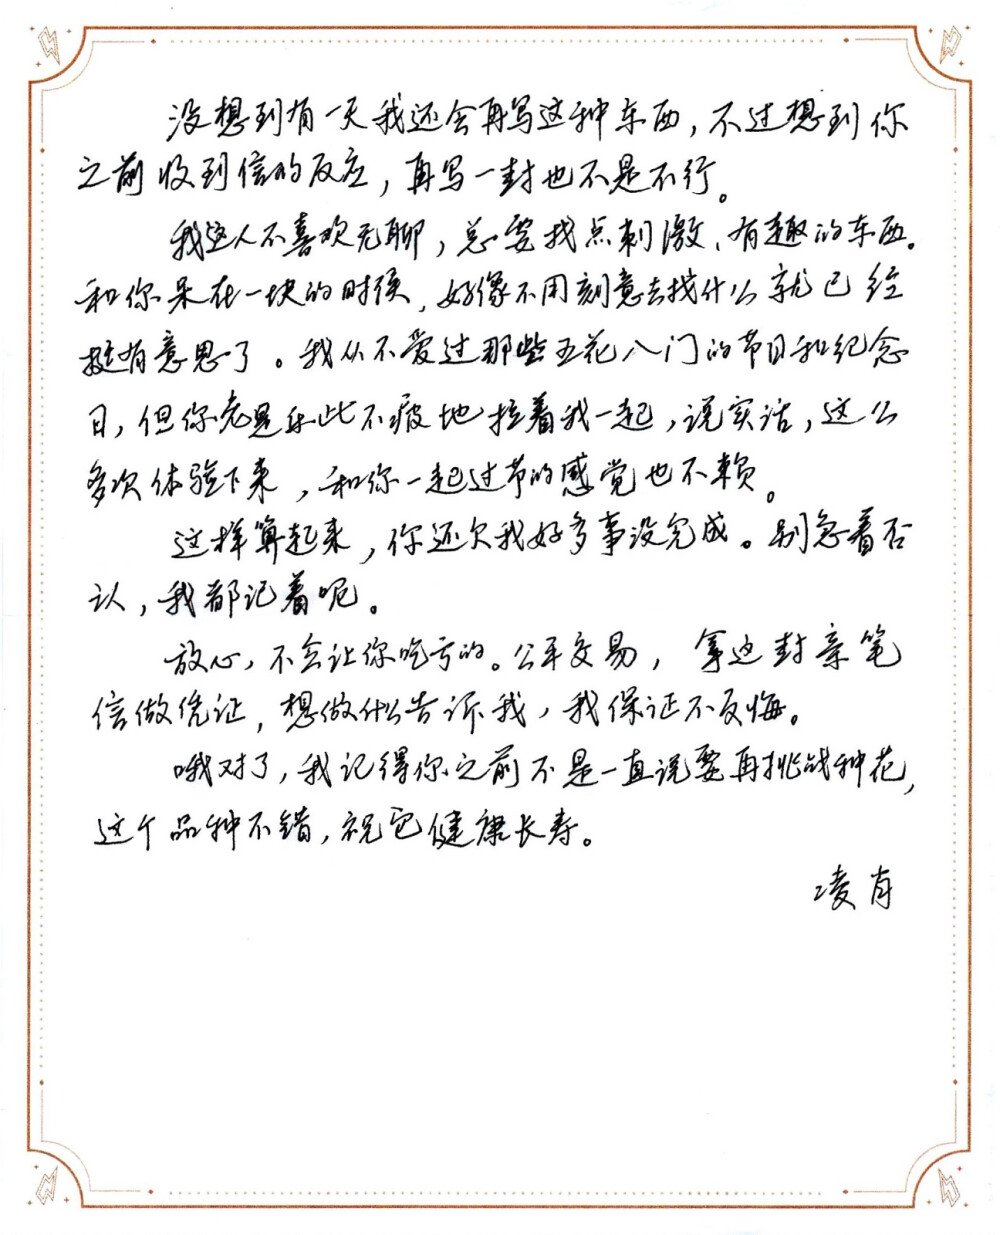 没想到有一天我还会再写这种东西，不过想到你
之前收到信的反应，再写一封也不是不行。
我这人不喜欢无聊，总要找点刺激、有趣的东西。
和你呆在一块的时候，好像不用刻意去找什么就已经
挺有意思了。我从不爱过那些五花八门的节日和纪念
日，但你老是乐此不疲地拉着我一起，说实话，这么
多次体验下来，和你一起过节的感觉也不赖。
这样算起来，你还欠我好多事没完成。别急着否
认，我都记着呢。
放心，不会让你吃亏的。公平交易，拿这封亲笔
信做凭证，想做什么告诉我，我保证不反悔。
哦对了，我记得你之前不是一直说要再挑战种花，
这个品种不错，祝它健康长寿。
凌肖